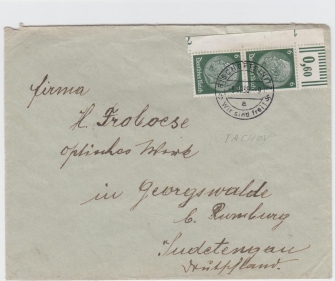 0,60
Deutsches Reich
6 6
Wir sind frei!
a
Firma
H. Froboese
optisches Werk
TACHOV
in Georgswalde
b. Rumburg
Sudetengau
Deutschland.